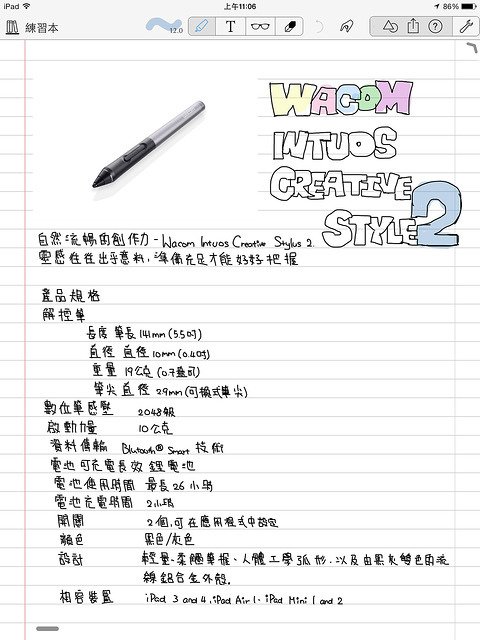 iPad 上午11:06 86%
練習本 12.0 T
WACOM
INTUOS
CREATIVE
STYLE 2
自然流暢的創作力 - Wacom Intuos Creative Stylus 2.
靈感往往出乎意料,準備充足才能好好把握
產品規格
解控筆
長度 筆長 141mm (5.5吋)
直徑 直徑 10mm (0.4吋)
重量 19公克 (0.7盎司)
筆尖 直徑 2.9mm (可換式筆尖)
數位筆感壓 2048級
啟動力量 10公克
資料傳輸 Blutooth® Smart 技術
電池 可充電長效鋰電池
電池使用時間 最長 26 小時
電池充電時間 2小時
開關 2個,可在應用程式中設定
顏色 黑色/灰色
設計 輕量、柔軟筆握、人體工學弧形,以及由黑灰雙色的流
線鋁合金外殼.
相容裝置 iPad 3 and 4, iPad Air 1、iPad Mini 1 and 2